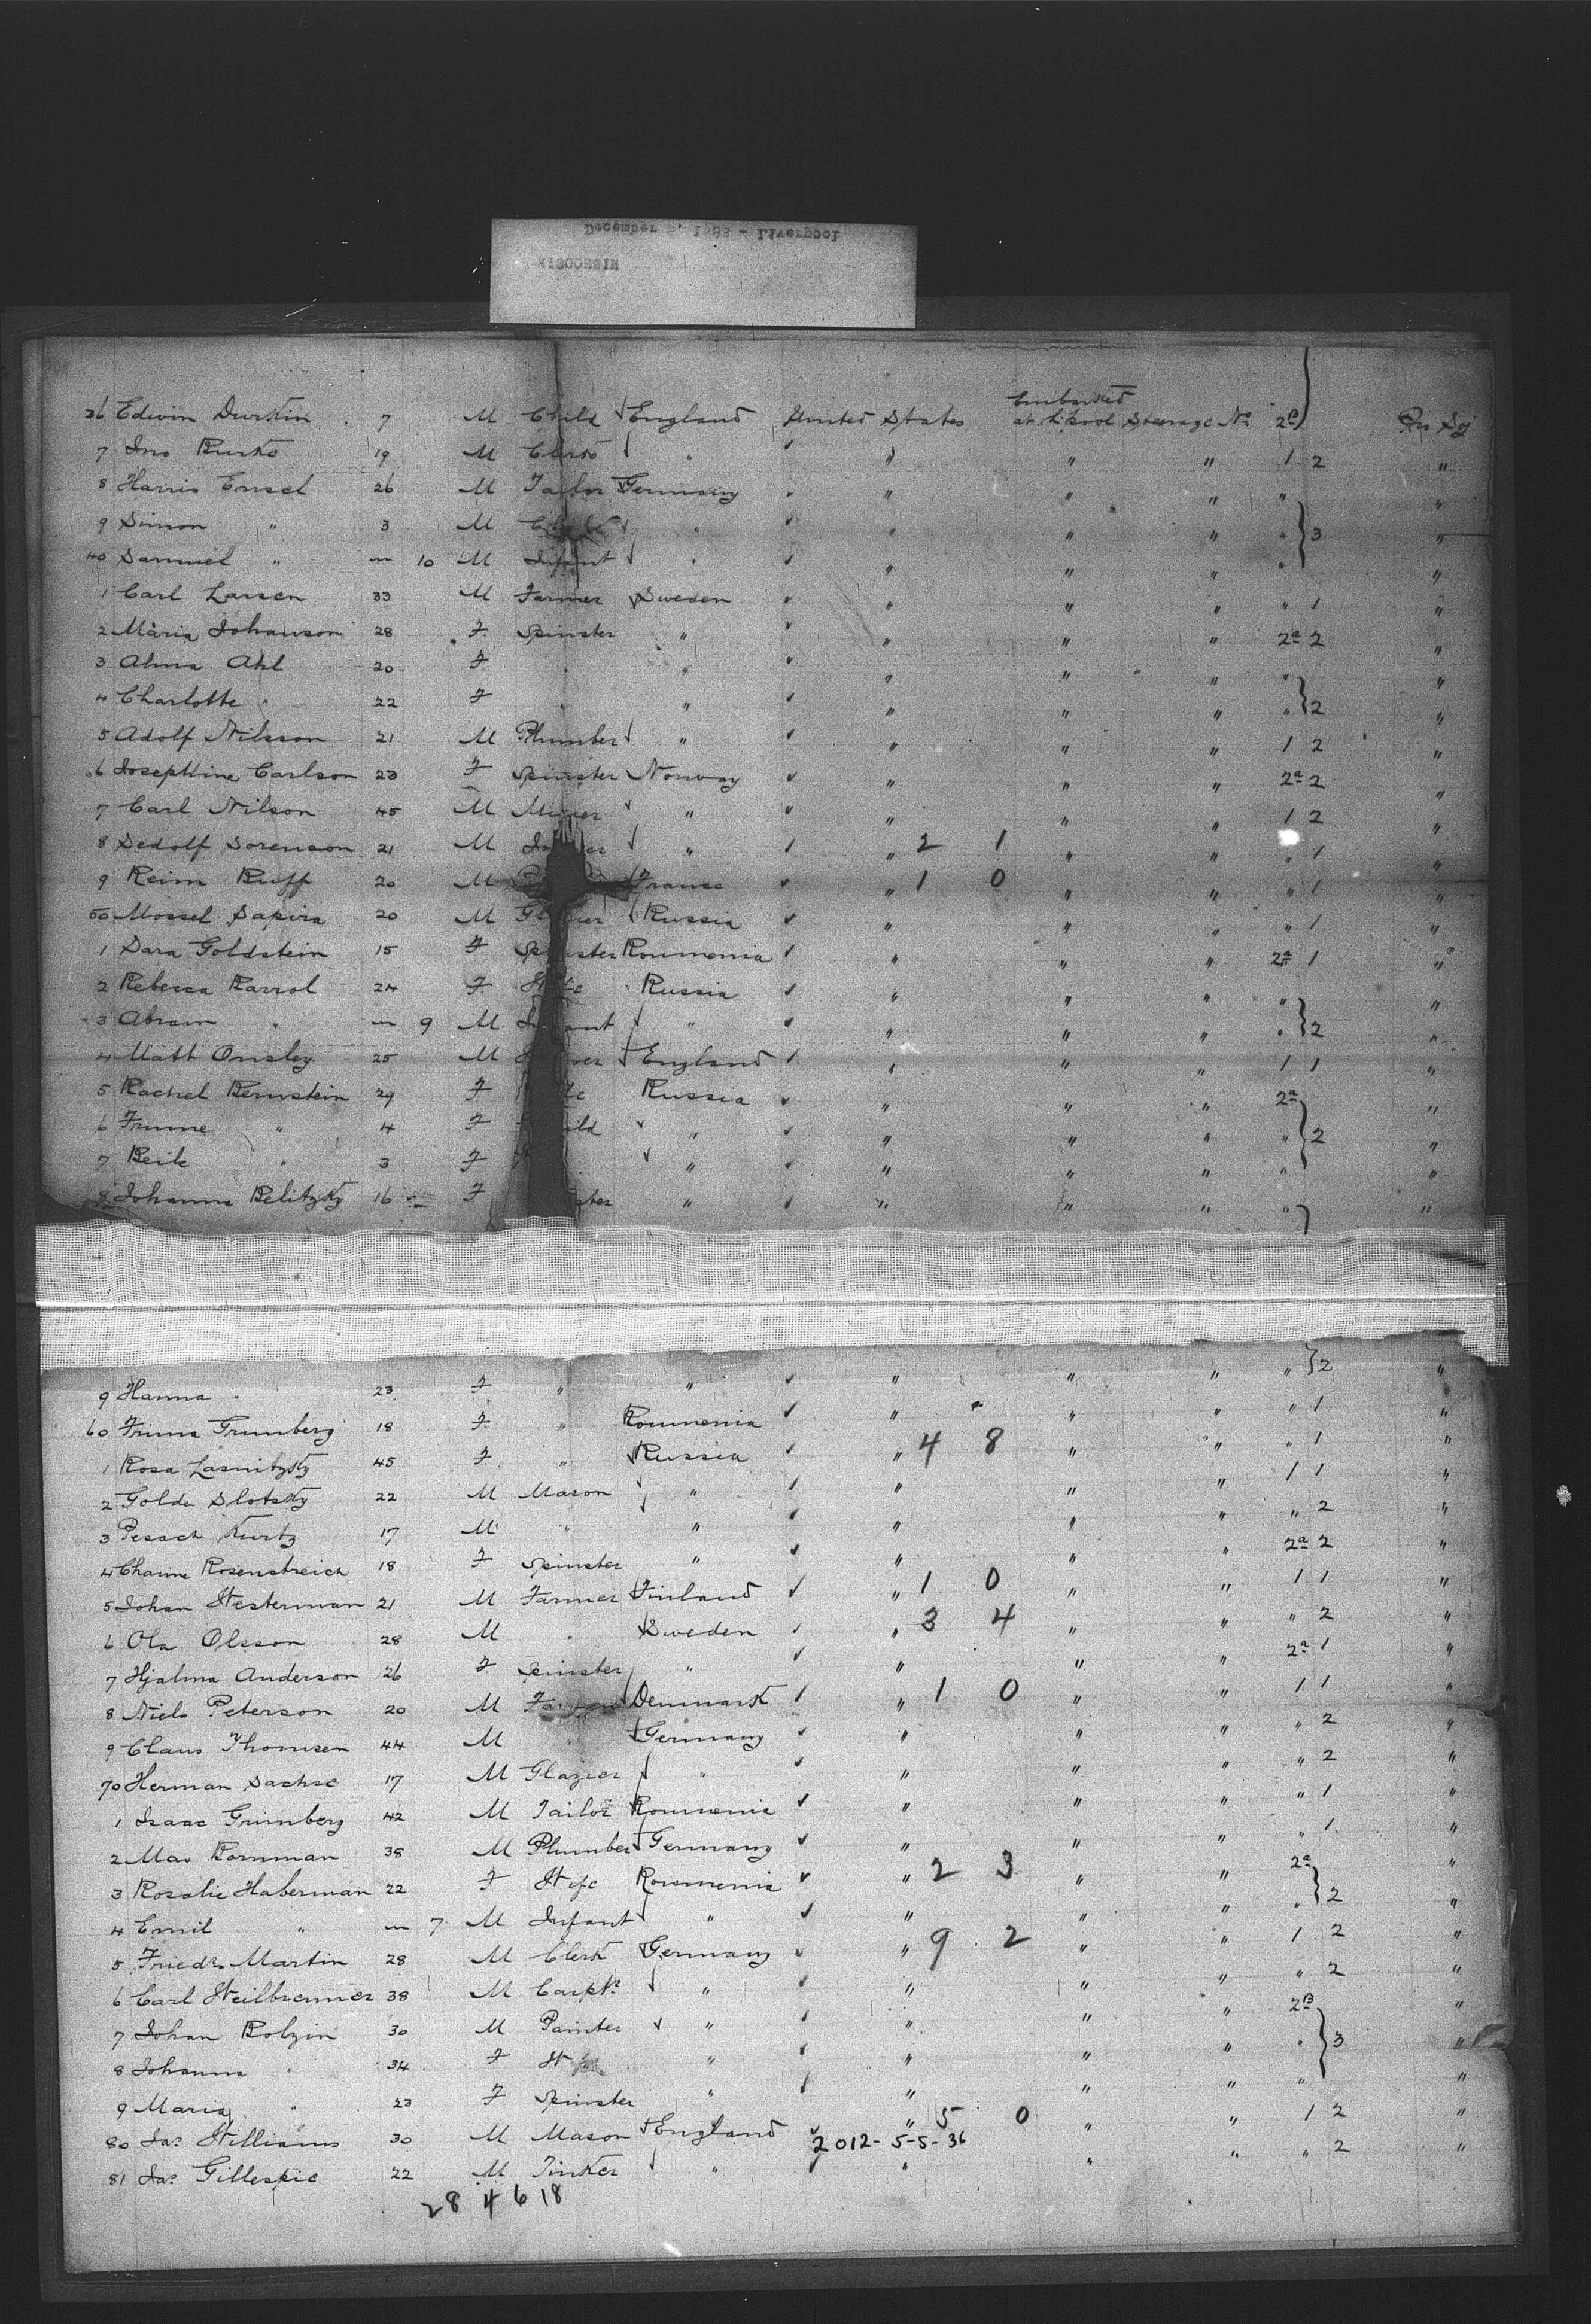 December 1893 - Liverpool
WISCONSIN
Embarked
36 Edwin Durkin 7 M Child England United States at L'pool Steerage No 2B Pro Soj
7 Jno Burke 19 M Clerk " " " " 1 2 "
8 Harris Ensel 26 M Tailor Germany " " " " "
9 Simon " 3 M " " " " " 3 "
40 Samuel " m 10 M Infant " " " " " "
1 Carl Larsen 33 M Farmer Sweden " " " " 1 "
2 Maria Johanson 28 F Spinster " " " " 2a 2 "
3 Alma Ahl 20 F " " " " " " "
4 Charlotte " 22 F " " " " " " 2 "
5 Adolf Nilsson 21 M Plumber " " " " 1 2 "
6 Josephine Carlson 23 F Spinster Norway " " " 2a 2 "
7 Carl Nilson 45 M Miner " " " " 1 2 "
8 Sedolf Sorenson 21 M " " 2 1 " " " 1 "
9 Reim Ruff 20 M France " 1 0 " " " 1 "
50 Mossel Sapira 20 M Russia " " " " 1 "
1 Sara Goldstein 15 F Spinster Roumenia " " " 2a 1 "
2 Rebecca Karrol 24 F Russia " " " " "
3 Abram " m 9 M Infant " " " " " 2 "
4 Matt Onsley 25 M England " " " 1 1 "
5 Rachel Bernstein 29 F Russia " " " 2a "
6 Frume " 4 F Child " " " " " 2 "
7 Beile " 3 F " " " " "
8 Johanna Belitzky 16 F Spinster " " " " " "
9 Hanna " 23 F " " " " " " 2 "
60 Frima Grunberg 18 F " Roumenia " " " " 1 "
1 Rosa Lasnitzky 45 F " Russia " 4 8 " " " 1 "
2 Golde Slotsky 22 M Mason " " " " 1 1 "
3 Pesach Kurtz 17 M " " " " " " 2 "
4 Chaime Rosenstreich 18 F Spinster " " " " 2a 2 "
5 Johan Westerman 21 M Farmer Finland " 1 0 " " 1 1 "
6 Ola Olsson 28 M " Sweden " 3 4 " " " 2 "
7 Hjalma Anderson 26 F Spinster " " " " 2a 1 "
8 Niels Peterson 20 M Denmark " 1 0 " " 1 1 "
9 Claus Thomsen 44 M " Germany " " " " 2 "
70 Herman Sachse 17 M Glazier " " " " " 2 "
1 Isaac Grimberg 42 M Tailor Roumenia " " " " 1 "
2 Max Kornman 38 M Plumber Germany " " " " 1 "
3 Rosalie Haberman 22 F Wife Roumenia " 2 3 " " 2a "
4 Emil " m 7 M Infant " " " " " 2 "
5 Friedr. Martin 28 M Clerk Germany " 9 2 " " 1 2 "
6 Carl Heilbrenner 38 M Carptr " " " " " 2 "
7 Johan Bolzin 30 M Painter " " " " 2B "
8 Johanna " 34 F " " " " " 3 "
9 Maria " 23 F Spinster " " " " " "
80 Jas Williams 30 M Mason England " 5 0 " " 1 2 "
2012-5-5-36
81 Jas Gillespie 22 M Tinker " " " " " 2 "
28 4 6 18